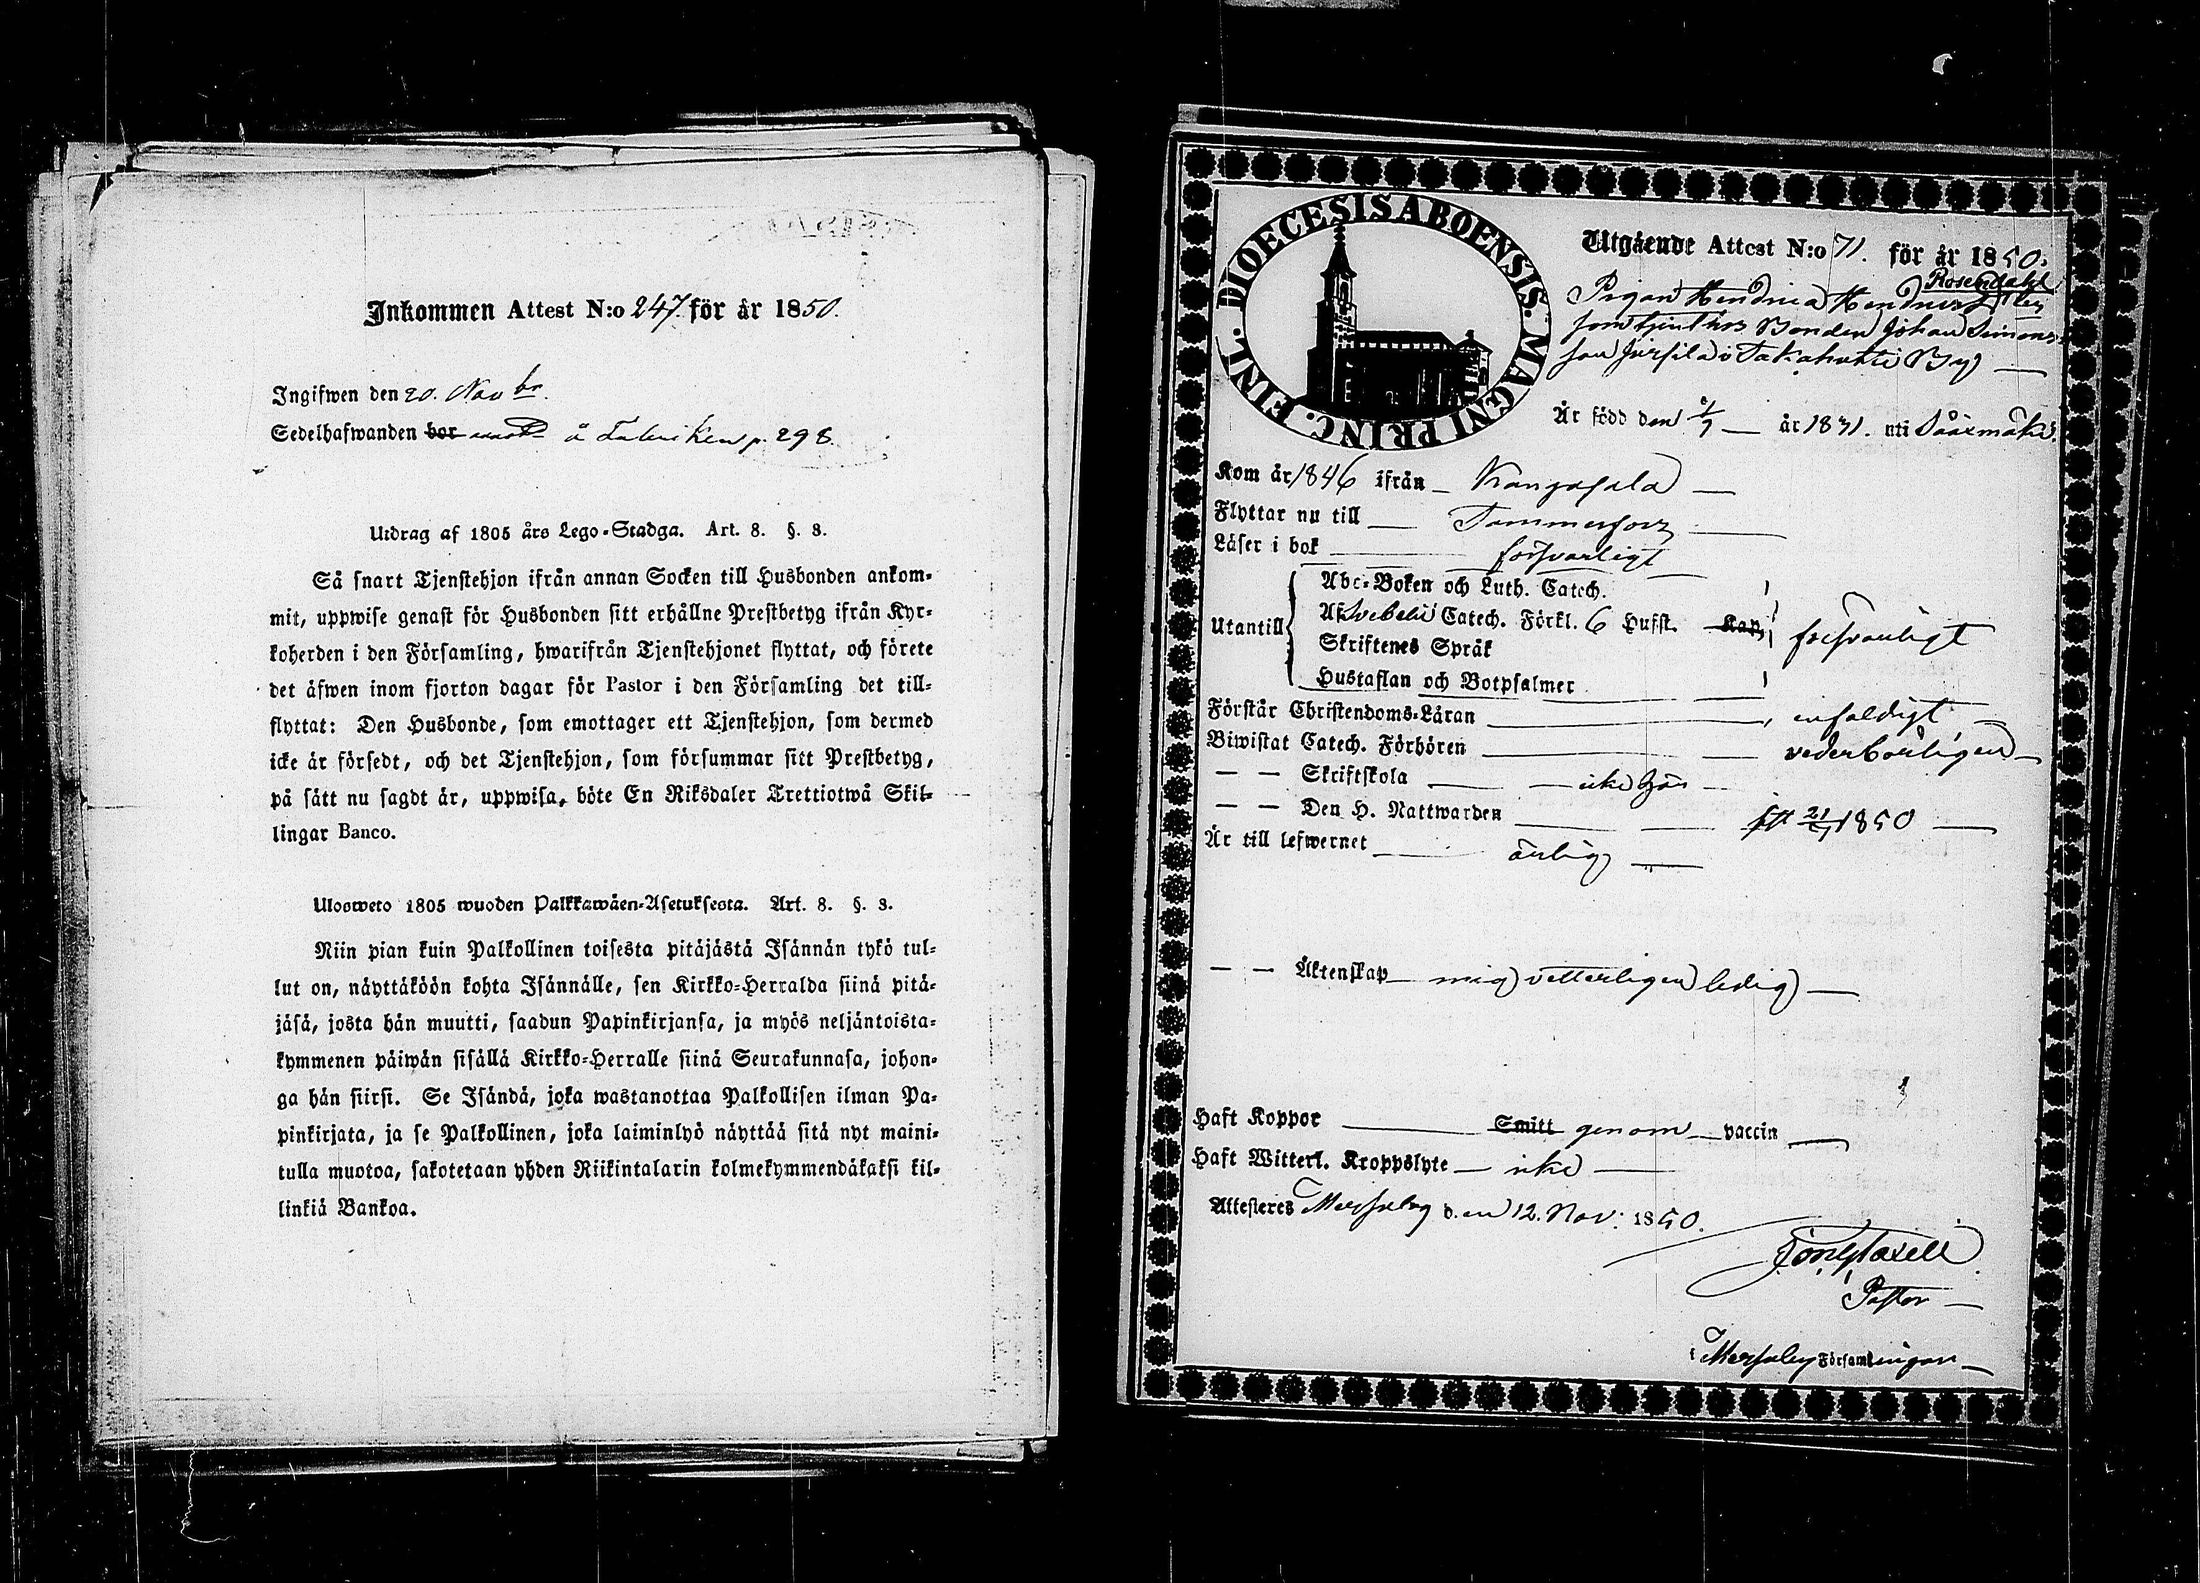 Inkommen Attest N:o 247. för år 1850.
Ingifwen den 20. Novbr.
Sedelhafwanden bor å Fabriken p. 298.
Utdrag af 1805 års Lego-Stadga. Art. 8. §. 8.
Så snart Tjenstehjon ifrån annan Socken till Husbonden ankom-
mit, uppwise genast för Husbonden sitt erhållne Prestbetyg ifrån Kyr-
koherden i den Församling, hwarifrån Tjenstehjonet flyttat, och förete
det äfwen inom fjorton dagar för Pastor i den Församling det till-
flyttat: Den Husbonde, som emottager ett Tjenstehjon, som dermed
icke är försedt, och det Tjenstehjon, som försummar sitt Prestbetyg,
på sätt nu sagdt är, uppwisa, böte En Riksdaler Trettiotwå Skil-
lingar Banco.
Ulosweto 1805 wuoden Palkkawäen-Asetuksesta. Art. 8. §. 8.
Niin pian kuin Palkollinen toisesta pitäjästä Isännän tykö tul-
lut on, näyttäköön kohta Isännälle, sen Kirkko-Herralda siinä pitä-
jäsä, josta hän muutti, saadun Papinkirjansa, ja myös neljäntoista-
kymmenen päiwän sisällä Kirkko-Herralle siinä Seurakunnasa, johon-
ga hän siirsi. Se Isändä, joka wastanottaa Palkollisen ilman Pa-
pinkirjata, ja se Palkollinen, joka laiminlyö näyttää sitä nyt maini-
tulla muotoa, sakotetaan yhden Riikintalarin kolmekymmendäkaksi kil-
linkiä Bankoa.
DIOECESIS ABOENSIS. MAGNI PRINC. FINL.
Utgående Attest N:o 71. för år 1850.
Rosendahl
Pigan Hendrica Hendricsdotter
som tjent hos Bonden Johan Simons-
son Jussila i Takahuhti By
Är född den år 1831. uti Sääxmäki.
Kom år 1846 ifrån Kangasala
Flyttar nu till Tammerfors
Läser i bok försvarligt
Utantill
Abc-Boken och Luth. Catech.
Af Svebelii Catech. Förkl. 6 Hufst. Kap. försvarligt
Skriftenes Språk
Hustaflan och Botpsalmer
Förstår Christendoms-Läran enfaldigt
Biwistat Catech. Förhören vederbörligen
— — Skriftskola icke här
— — Den H. Nattwarden 1850
Är till lefwernet ärlig
— — Äktenskap mig vetterligen ledig
Haft Koppor Smitt genom vaccin
Haft Witterl. Kroppslyte icke
Attesteres Messuby den 12. Nov. 1850.
Pastor
i Messuby Församlingen